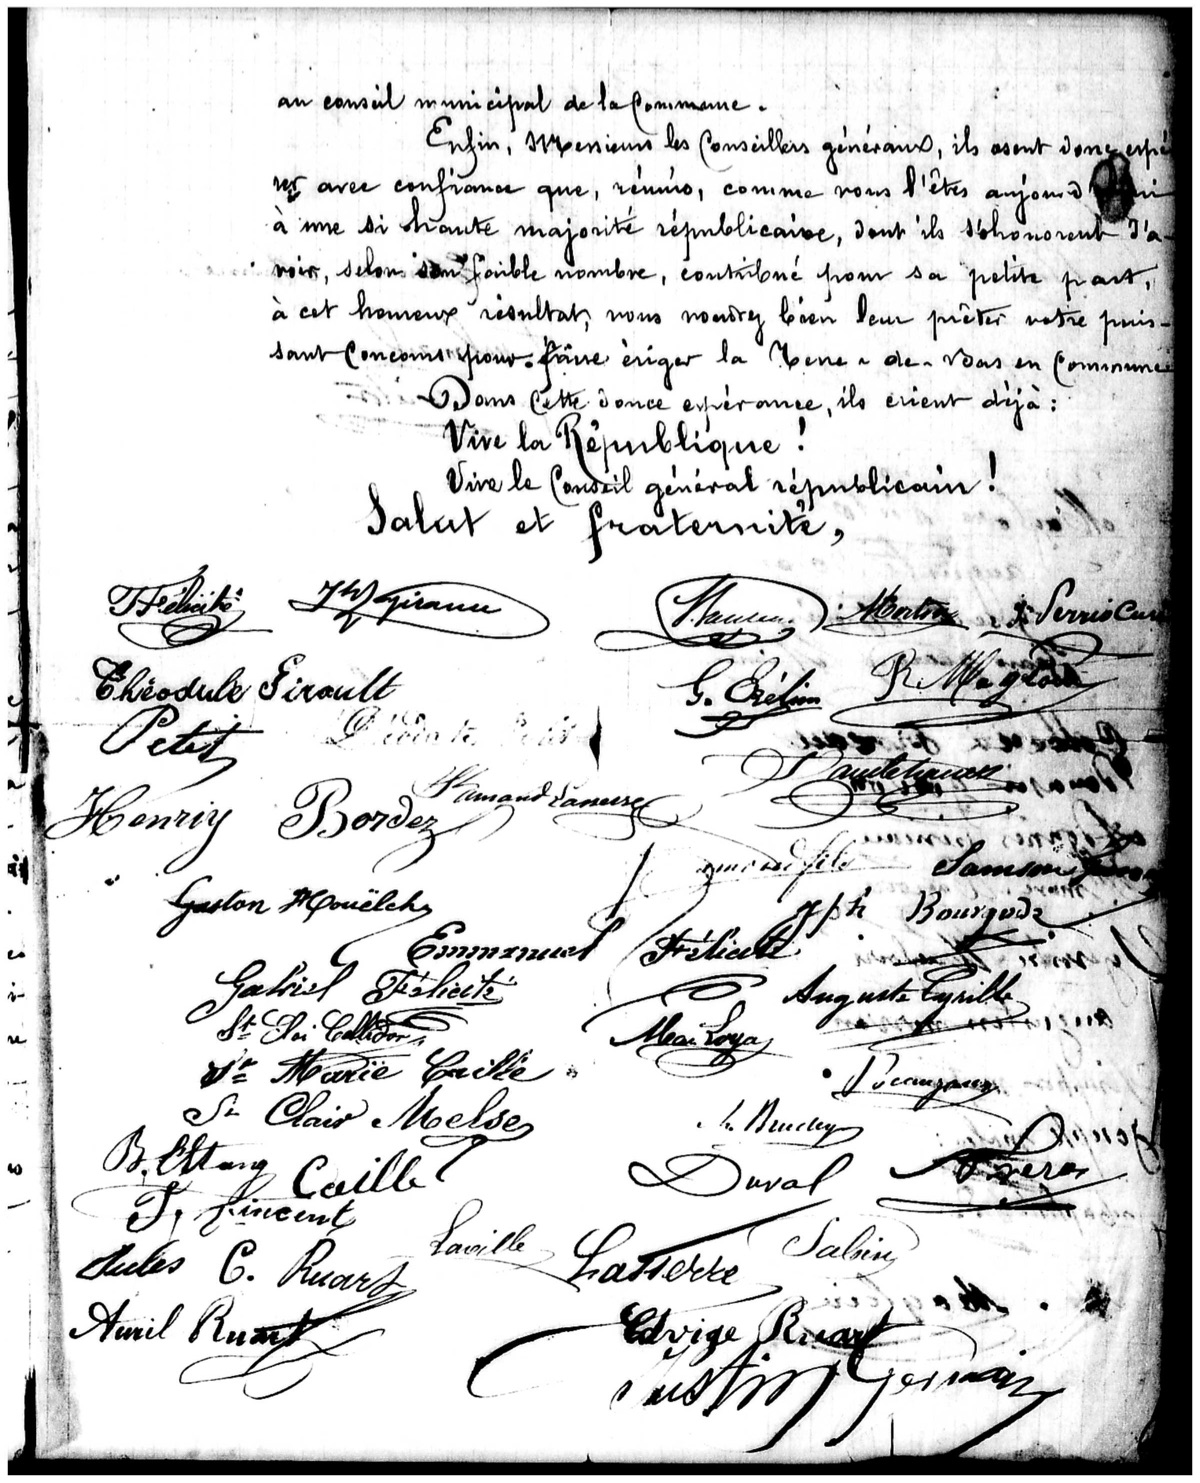 au conseil municipal de la Commune.
Enfin, Messieurs les Conseillers généraux, ils osent donc espé
rer avec confiance que, réunis, comme vous l'êtes aujourd'hui
à une si haute majorité républicaine, dont ils s'honorent d'a-
voir, selon son faible nombre, contribué pour sa petite part,
à cet heureux résultat, vous voudrez bien leur prêter votre puis-
sant concours pour faire ériger la Terre-de-Bas en Commune
Dans cette douce espérance, ils crient déjà:
Vive la République!
Vive le Conseil général républicain!
Salut et fraternité,
T Félicité Jh Girauu Martin
Théodule Girault G.
Petit
Henriy Bordez
Samson
Gaston Houëlche Jph Bourgade
Emmanuel Félicité
Gabriel Félicité Auguste Cyrille
St Loi Callidor
Marie Caillé
St Clair Melse
B. Ettang Caille Duval Frere
T, Vincent
Jules C. Ruart Laville Lasserre Salvin
Avril Ruart Edvige Ruart
Justin Germain